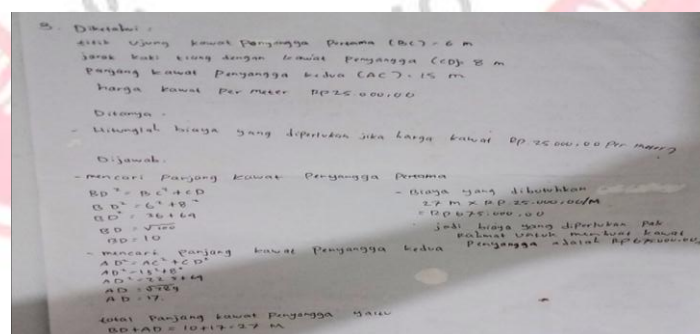 3. Diketahui :
titik ujung kawat Penyangga Pertama (BC) = 6 m
jarak kaki tiang dengan kawat Penyangga (CD) = 8 m
Panjang kawat Penyangga kedua (AC) = 15 m
harga kawat per meter Rp25.000,00
Ditanya .
- Hitunglah biaya yang diperlukan jika harga kawat Rp.25.000,00 Per meter?
Dijawab.
- mencari Panjang kawat Penyangga Pertama
BD² = BC² + CD
BD² = 6² + 8²
BD² = 36 + 64
BD = √100
BD = 10
- mencari Panjang kawat Penyangga kedua
AD² = AC² + CD²
AD² = 15² + 8²
AD² = 225 + 64
AD = √289
AD = 17.
total Panjang kawat Penyangga yaitu
BD + AD = 10 + 17 = 27 M
- Biaya yang dibutuhkan
27 M x Rp.25.000,00/M
= Rp675.000,00
jadi biaya yang diperlukan Pak
Rahmat untuk membuat kawat
Penyangga adalah Rp675.000,00,